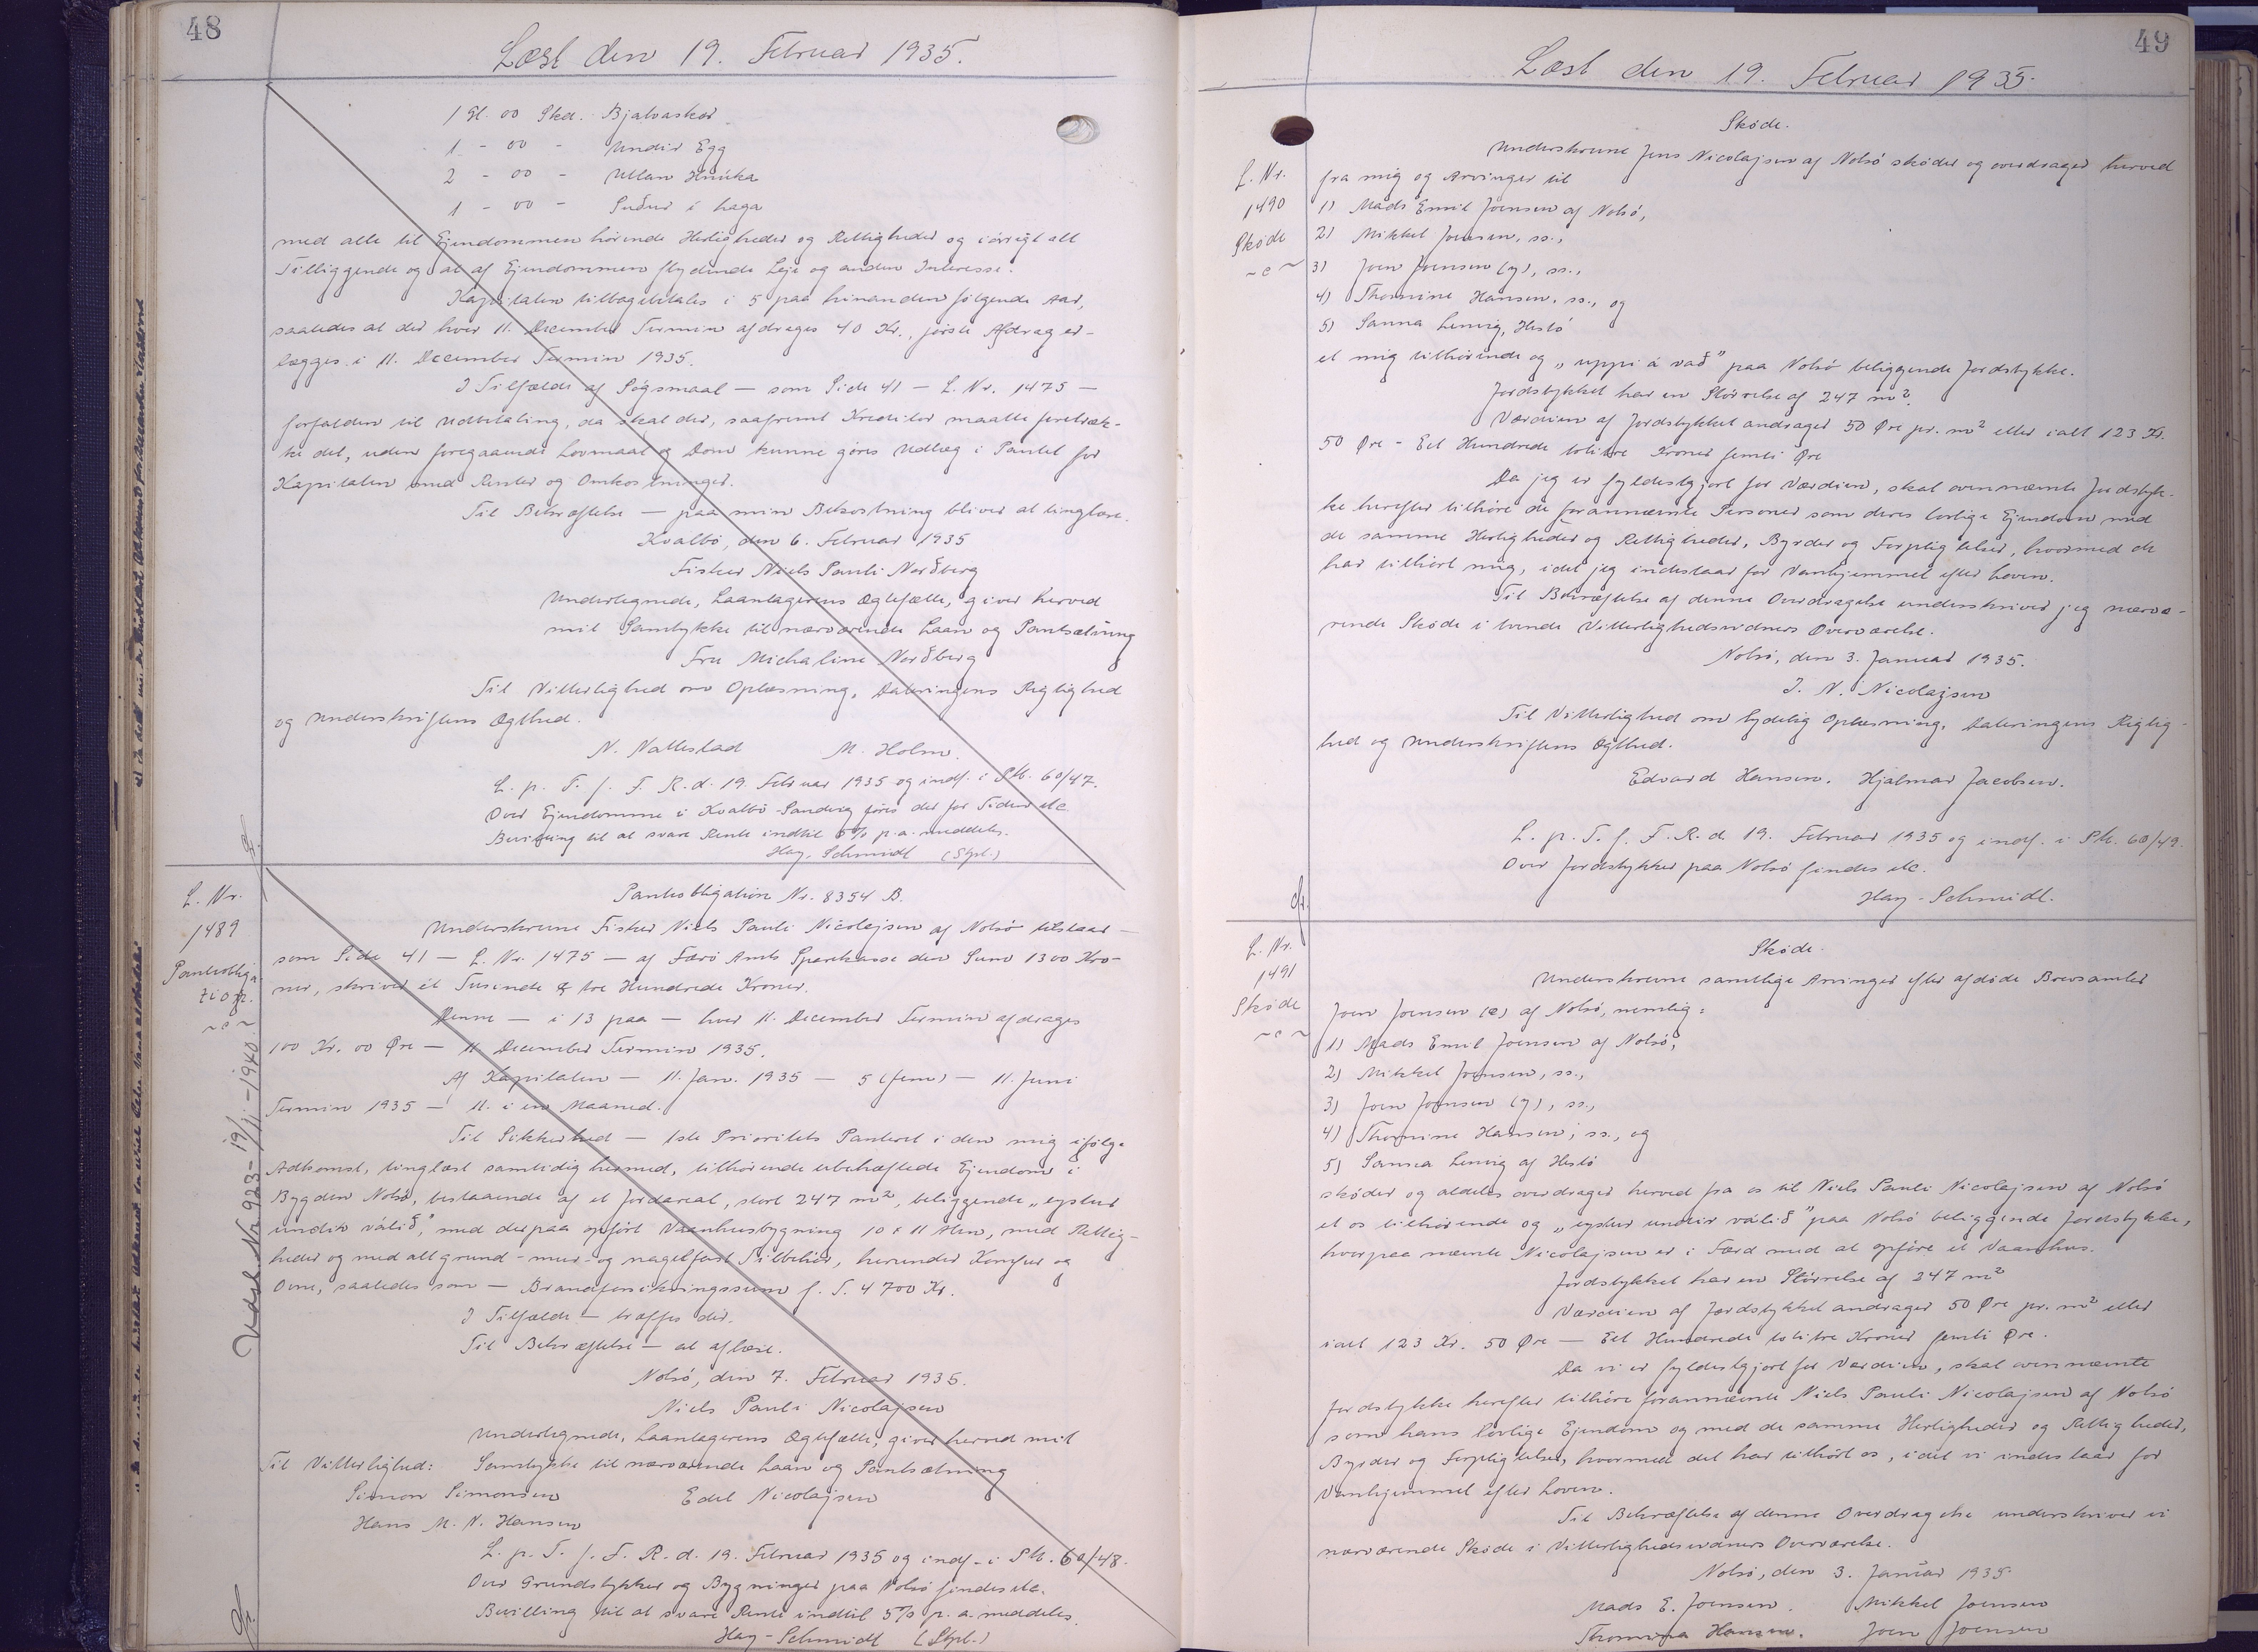 48
Læst den 19. Februar 1935.
1 Gl. 00 Skd. Bjalvaskor
1 - 00 - Undir Egg
2 - 00 - Uttan Hnúka
1 - 00 - Suður i haga
med alle til Ejendommen hørende Herligheder og Rettigheder og iøvrigt alt
Tilliggende og al af Ejendommen flydende Leje og anden Interesse.
Kapitalen tilbagebetales i 5 paa hinanden følgende Aar,
saaledes at der hver 11. December Termin afdrages 40 Kr., første Afdrag er-
lægges i 11. December Termin 1935.
I Tilfælde af Søgsmaal — som Side 41 — L. Nr. 1475 —
forfalden til Udbetaling, da skal der, saafremt Kreditor maatte foretræk-
ke det, uden foregaaende Lovmaal og Dom kunne gøres Udlæg i Pantet for
Kapitalen med Renter og Omkostninger.
Til Bekræftelse — paa min Bekostning bliver at tinglæse.
Kvalbø, den 6. Februar 1935
Fisker Niels Pauli Norðberg
Undertegnede, Laantagerens Ægtefælle, giver herved
mit Samtykke til nærværende Laan og Pantsætning
Fru Michaline Norðberg
Til Vitterlighed om Oplæsning, Dateringens Rigtighed
og Underskriftens Ægthed.
N. Nattestad M. Holm.
L. p. T. f. F. R. d. 19. Februar 1935 og indf. i Pb. 60/47.
Over Ejendomme i Kvalbø-Sandvig føres der for Tiden etc
Bevilling til at svare Rente indtil 5% p.a. meddeles.
Hay-Schmidt (Stpl.)
L. Nr.
1489
Pantobliga-
tion.
~c~
Vedst. Nr 923-19/11-1940
Pantobligation Nr. 8354 B.
Underskrevne Fisker Niels Pauli Nicolajsen af Nolsø tilstaar —
som Side 41 — L. Nr. 1475 — af Færø Amts Sparekasse den Sum 1300 Kro-
ner, skriver et Tusinde & tre Hundrede Kroner.
Denne — i 13 paa — hver 11. December Termin afdrages
100 Kr. 00 Øre — 11 December Termin 1935.
Af Kapitalen — 11. Jan. 1935 — 5 (fem) — 11. Juni
Termin 1935 — 11. i en Maaned.
Til Sikkerhed — 1ste Prioritets Panteret i den mig ifølge
Adkomst, tinglæst samtidig hermed, tilhørende ubehæftede Ejendom i
Bygden Nolsø, bestaaende af et Jordareal, stort 247 m², beliggende „eystur
undir válið", med derpaa opført Vaanhusbygning 10 x 11 Alen, med Rettig-
heder og med alt grund- mur- og nagelfast Tilbehør, herunder Komfur og
Ovne, saaledes som — Brandforsikringssum f. T. 4700 Kr.
I Tilfælde — træffes der.
Til Bekræftelse — at aflæse.
Nolsø, den 7. Februar 1935.
Niels Pauli Nicolajsen
Undertegnede, Laantagerens Ægtefælle, giver herved mit
Til Vitterlighed: Samtykke til nærværende Laan og Pantsætning
Simon Simonsen Edel Nicolajsen
Hans M. N. Hansen
L. p. T. f. F. R. d. 19. Februar 1935 og indf. i Pb. 60/48.
Over Grundstykker og Bygninger paa Nolsø findes etc.
Bevilling til at svare Rente indtil 5% p. a. meddeles.
Hay-Schmidt (Stpl.)
49
Læst den 19. Februar 1935.
L. Nr.
1490
Skøde
~c~
Skøde.
Underskrevne Jens Nicolajsen af Nolsø skøder og overdrager herved
fra mig og Arvinger til
1) Mads Emil Joensen af Nolsø,
2) Mikkel Joensen, ss.,
3) Joen Joensen (y), ss.,
4) Thomine Hansen, ss., og
5) Sanna Lervig, Hestø
et mig tilhørende og „uppi á vað" paa Nolsø beliggende Jordstykke.
Jordstykket har en Størrelse af 247 m².
Værdien af Jordstykket andrager 50 Øre pr. m² eller ialt 123 Kr.
50 Øre - Eet Hundrede toti tre Kroner femti Øre
Da jeg er fyldestgjort for Værdien, skal ovennævnte Jordstyk-
ke herefter tilhøre de forannævnte Personer som deres lovlige Ejendom med
de samme Herligheder og Rettigheder, Byrder og Forpligtelser, hvormed de
har tilhørt mig, idet jeg indestaar for Vanhjemmel efter Loven.
Til Bekræftelse af denne Overdragelse underskriver jeg nærvæ-
rende Skøde i tvende Vitterlighedsvidners Overværelse.
Nolsø, den 3. Januar 1935.
J. N. Nicolajsen
Til Vitterlighed om tydelig Oplæsning, Dateringens Rigtig-
hed og Underskriftens Ægthed.
Edvard Hansen. Hjalmar Jacobsen.
L. p. T. f. F. R. d. 19. Februar 1935 og indf. i Pb. 60/49.
Over Jordstykker paa Nolsø findes etc.
Hay-Schmidt.
L. Nr.
1491
Skøde
~c~
Skøde.
Underskrevne samtlige Arvinger efter afdøde Brevsamler
Joen Joensen (æ) af Nolsø, nemlig:
1) Mads Emil Joensen af Nolsø,
2) Mikkel Joensen, ss.,
3) Joen Joensen (y), ss.,
4) Thomine Hansen, ss., og
5) Sanna Lervig af Hestø
skøder og aldeles overdrager herved fra os til Niels Pauli Nicolajsen af Nolsø
et os tilhørende og „eystur undir válið" paa Nolsø beliggende Jordstykke,
hvorpaa nævnte Nicolajsen er i Færd med at opføre et Vaanhus.
Jordstykket har en Størrelse af 247 m²
Værdien af Jordstykket andrager 50 Øre pr. m² eller
ialt 123 Kr. 50 Øre — Eet Hundrede toti tre Kroner femti Øre.
Da vi er fyldestgjort for Værdien, skal ovennævnte
Jordstykke herefter tilhøre forannævnte Niels Pauli Nicolajsen af Nolsø
som hans lovlige Ejendom og med de samme Herligheder og Rettigheder,
Byrder og Forpligtelser, hvormed det har tilhørt os, idet vi indestaar for
Vanhjemmel efter Loven.
Til Bekræftelse af denne Overdragelse underskriver vi
nærværende Skøde i Vitterlighedsvidners Overværelse.
Nolsø, den 3. Januar 1935.
Mads E. Joensen. Mikkel Joensen
Thomina Hansen. Joen Joensen